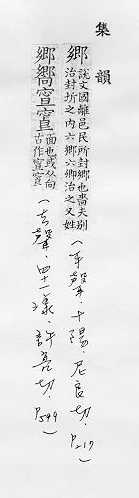 集韻
鄉 說文國離邑民所封鄉也嗇夫別治封圻之内六鄉六鄉治之又姓
(平聲・十陽・尼良切・P.217)
鄉嚮 面也或从向古作
(去聲・四十一漾・許亮切・P.599)